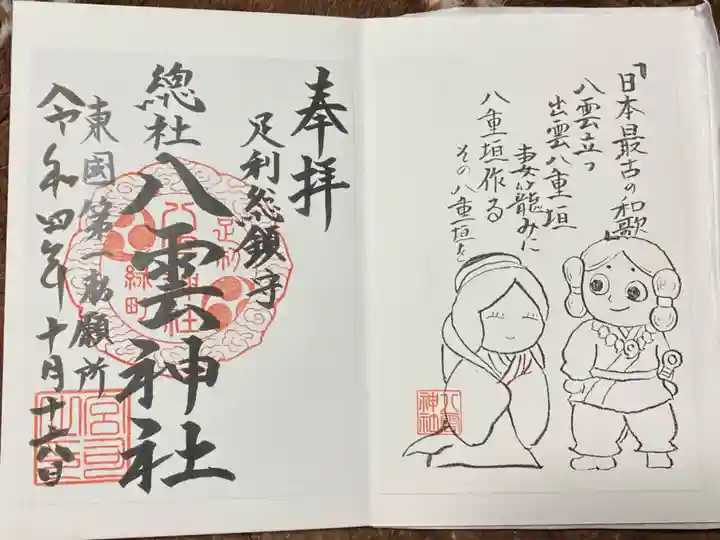 「日本最古の和歌」
八雲立つ
出雲八重垣
妻籠みに
八重垣作る
その八重垣を
八雲
神社
奉拝
足利総鎮守
總社
八雲神社
東國第一勅願所
令和四年十月十六日
足利
八雲神社
緑町